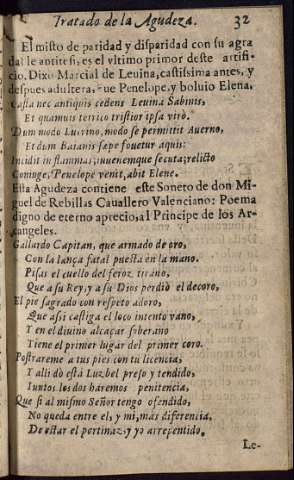 Tratado de la Agudeza. 32
El misto de paridad y disparidad con su agra
dable antitesi, es el vltimo primor deste artifi-
cio. Dixo Marcial de Leuina, castissima antes, y
despues adultera, que Penelope, y boluio Elena.
Casta nec antiquis cedens Leuina Sabinis,
Et quamuis tetrico tristior ipsa viro.
Dum modo Lucrino, modo se permittit Auerno,
Et dum Baianis sæpe fouetur aquis:
Incidit in flammas; iuuenemque secuta; relicto
Coniuge, Penelope venit, abit Elene.
Esta Agudeza contiene este Soneto de don Mi-
guel de Rebillas Cauallero Valenciano: Poema
digno de eterno aprecio, al Principe de los Ar-
cangeles.
Gallardo Capitan, que armado de oro,
Con la lança fatal puesta en la mano.
Pisas el cuello del feroz tirano,
Que a su Rey, y a su Dios perdiò el decoro,
El pie sagrado con respeto adoro,
Que assi castiga el loco intento vano,
Y en el diuino alcaçar soberano
Tiene el primer lugar del primer coro.
Postrareme a tus pies con tu licencia,
Y alli dò està Luzbel preso y tendido,
Iuntos los dos haremos penitencia,
Que si al mismo Señor tengo ofendido,
No queda entre el, y mi, mas diferencia,
De estar el pertinaz, y yo arrepentido.
Le-